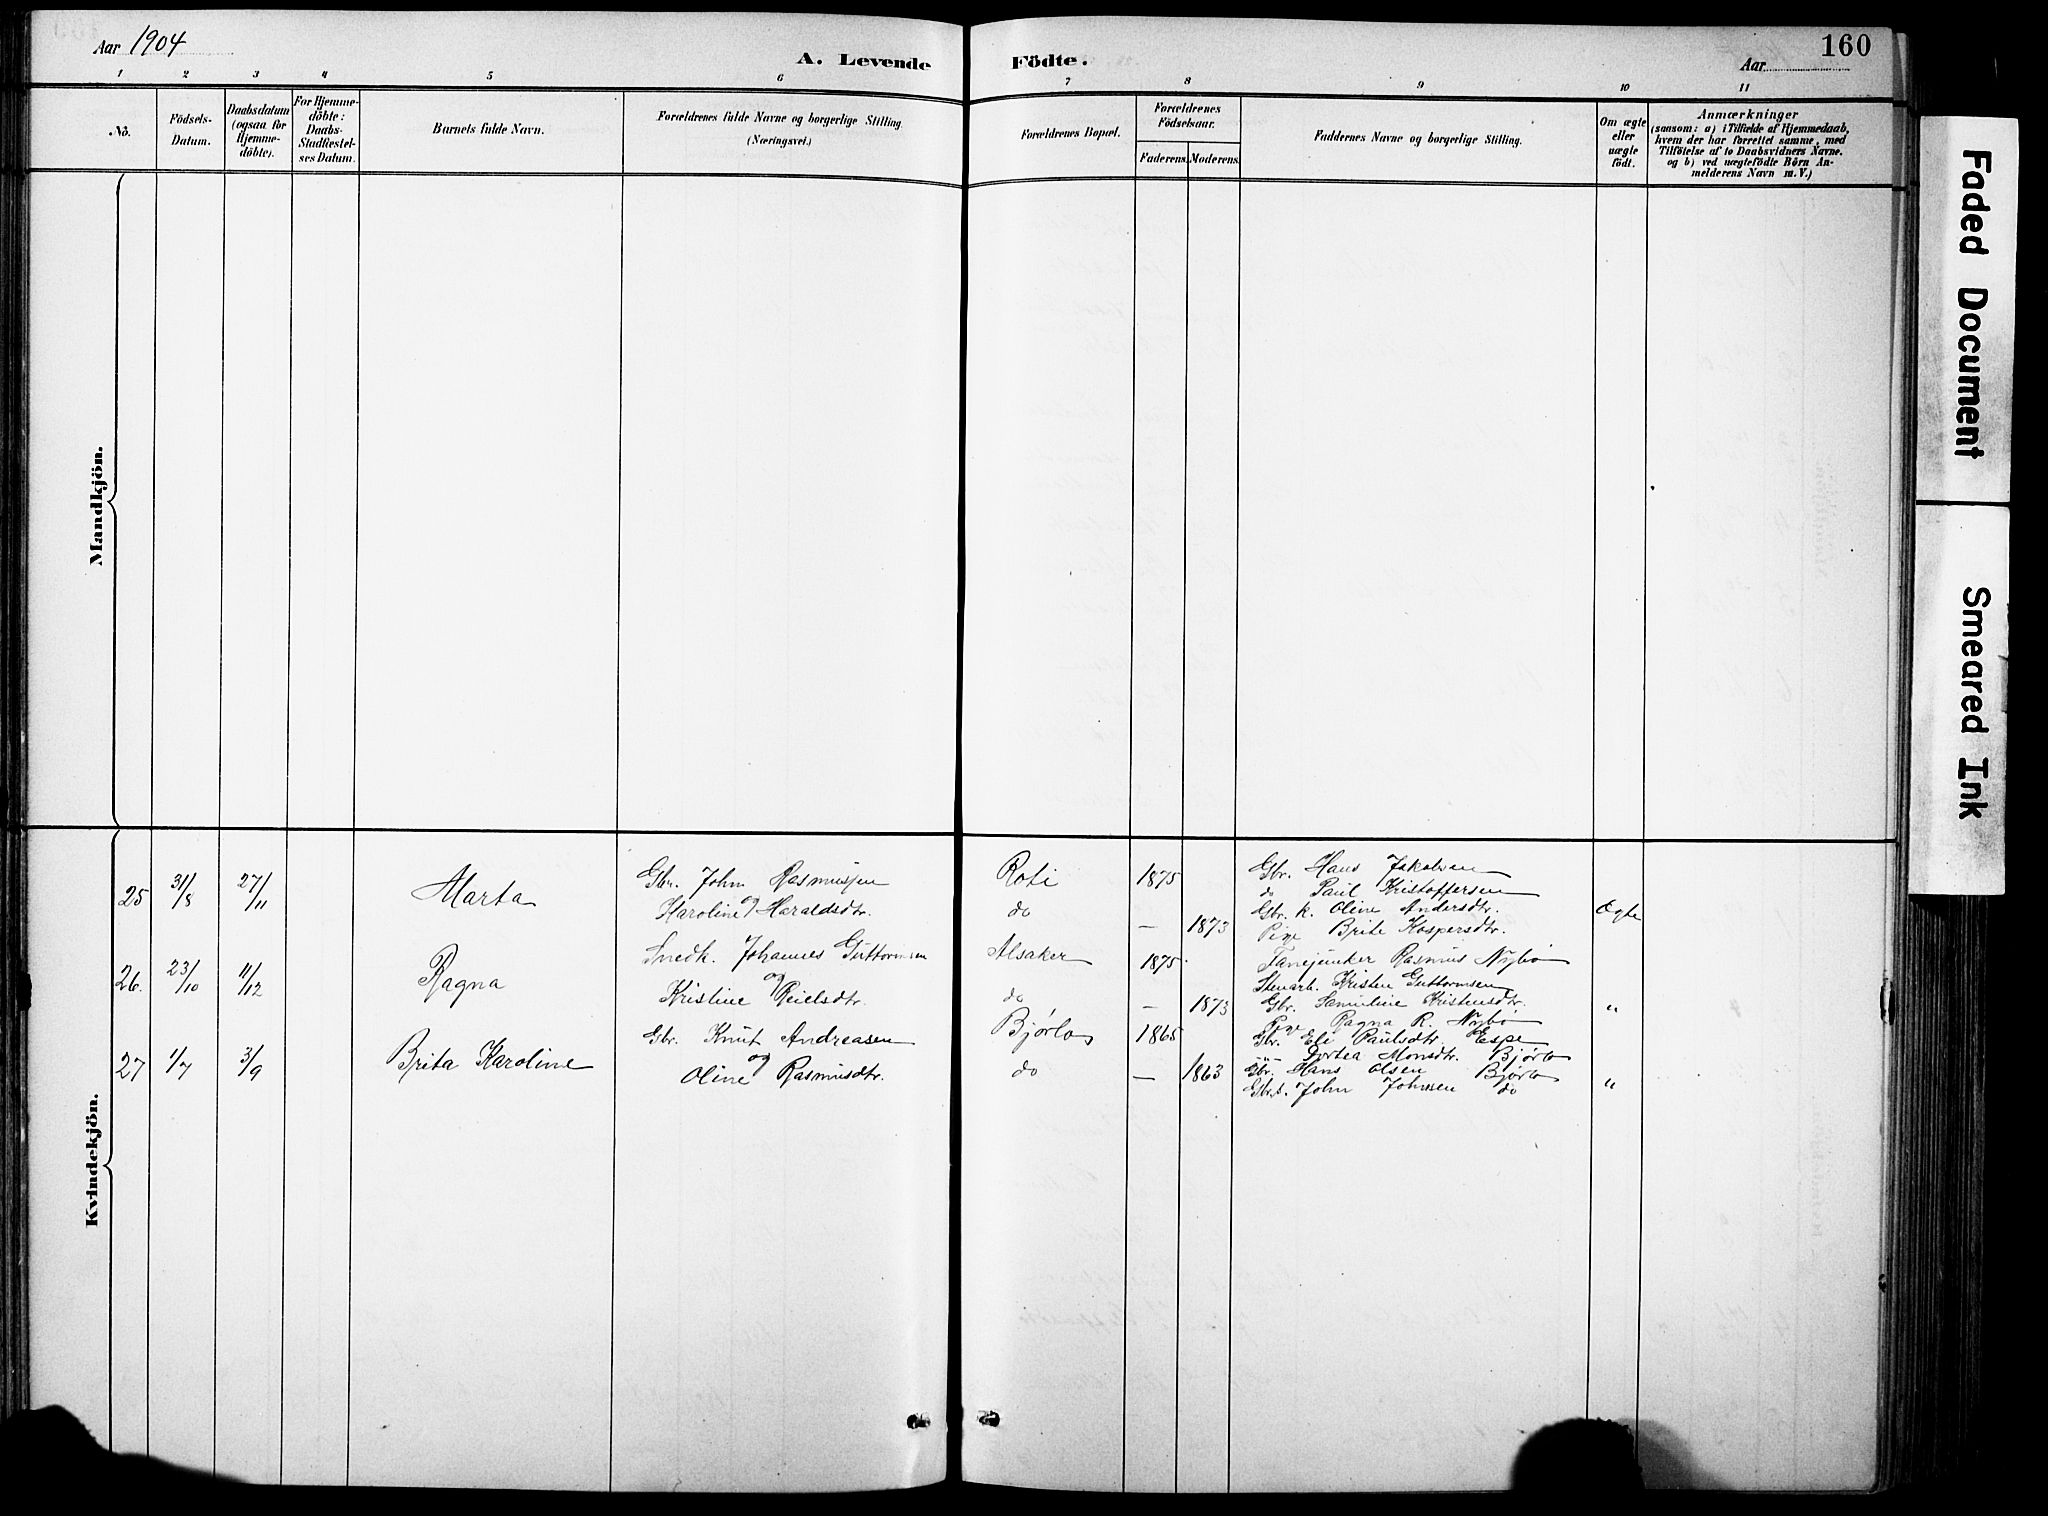 Aar 1904
A. Levende Födte.
Aar
160
1 2 3 4 5 6 7 8 9 10 11
No.
Födsels-
Datum.
Daabsdatum
(ogsaa for
Hjemme-
döbte).
For Hjemme-
döbte:
Daabs-
Stadfestel-
ses Datum.
Barnets fulde Navn.
Forældrenes fulde Navne og borgerlige Stilling.
(Næringsvei.)
Forældrenes Bopæl.
Forældrenes
Födselsaar.
Faderens. Moderens.
Faddernes Navne og borgerlige Stilling.
Om ægte
eller
uægte
födt.
Anmærkninger
(saasom: a) i Tilfælde af Hjemmedaab,
hvem der har forrettet samme, med
Tilföielse af to Daabsvidners Navne.
og b) ved uægtefödte Börn An-
melderens Navn m. V.)
Mandkjön.
Kvindekjön.
25 31/8 27/11 Marta
Gbr. John Rasmussen
og
Karoline Haraldsdtr.
Roti 1875
do — 1873
Gbr. Hans Jakobsen
do Paul Kristoffersen
Gbr. k. Oline Andersdtr.
Pige Brite Kaspersdtr.
Ægte
26. 23/10 11/12 Ragna
Snedk. Johannes Guttormsen
og
Kristine Reielsdtr.
Alsaker 1875
do — 1873
Fanejunker Rasmus Nybø
Stenarb. Kristen Guttormsen
Gbr. Samuline Kristensdtr.
Pige Ragna R. Nybø
"
27 1/7 3/9 Brita Karoline
Gbr. Knut Andreasen
og
Oline Rasmusdtr.
Bjørlo 1865
do — 1863
Gbr. Eli Paulsdtr. Espe
-"- Dortea Monsdtr. Bjørlo
Gbr. Hans Olsen Bjørlo
Gbr.s. John Johnsen do
"
Faded Document
Smeared Ink